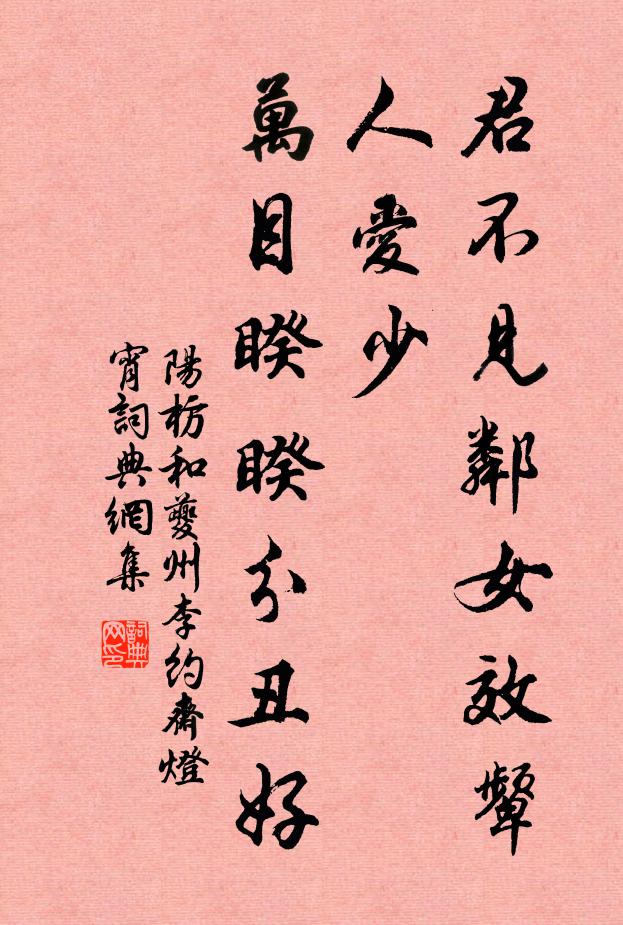 君不見鄰女效顰
人愛少
萬目睽睽分丑好
陽枋和夔州李約齋燈
宵詞典網集
詞典
网印